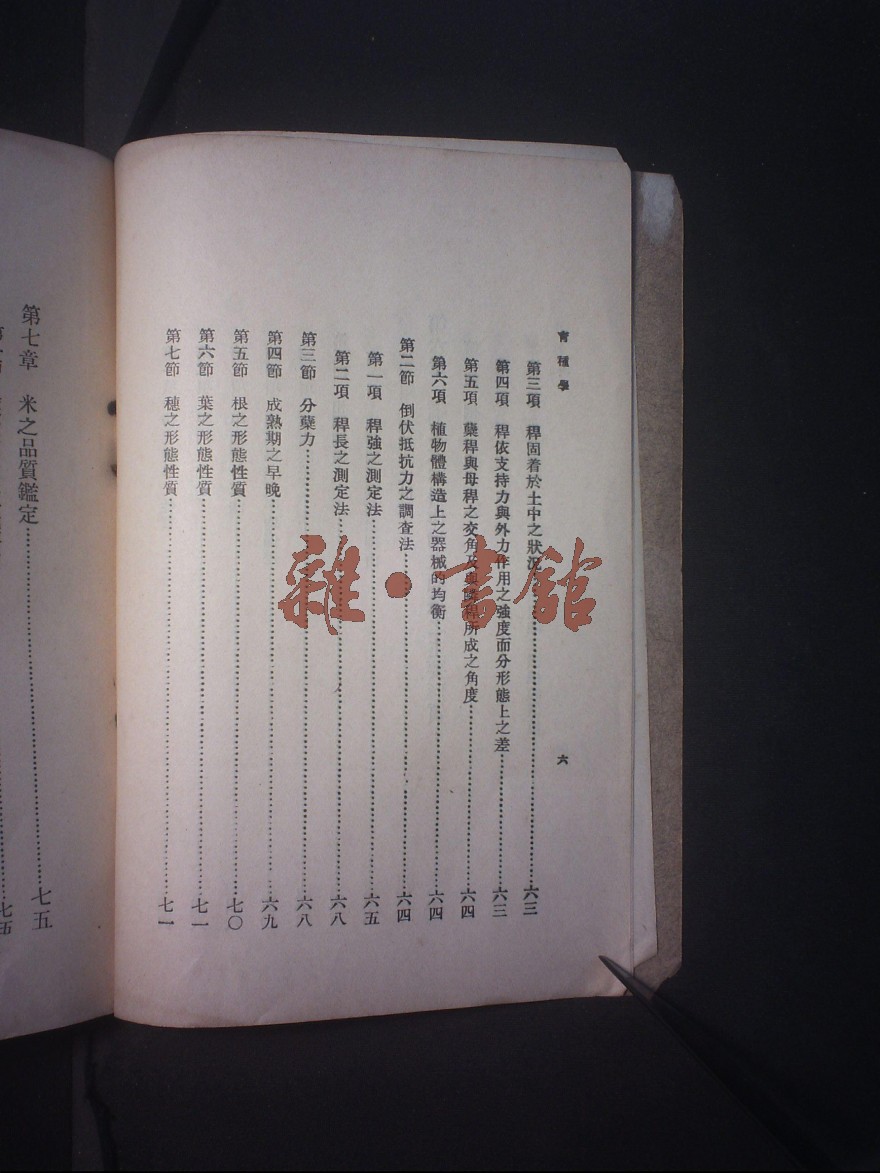 育種學
六
第三項 稈固着於土中之狀況……六三
第四項 稈依支持力與外力作用之強度而分形態上之差……六三
第五項 蘗稈與母稈之交角及與隣稈所成之角度……六四
第六項 植物體構造上之器械的均衡……六四
第二節 倒伏抵抗力之調查法……六四
第一項 稈強之測定法……六五
第二項 稈長之測定法……六八
第三節 分蘗力……六八
第四節 成熟期之早晚……六九
第五節 根之形態性質……七〇
第六節 葉之形態性質……七一
第七節 穗之形態性質……七一
第七章 米之品質鑑定……七五
七五
雜·書館